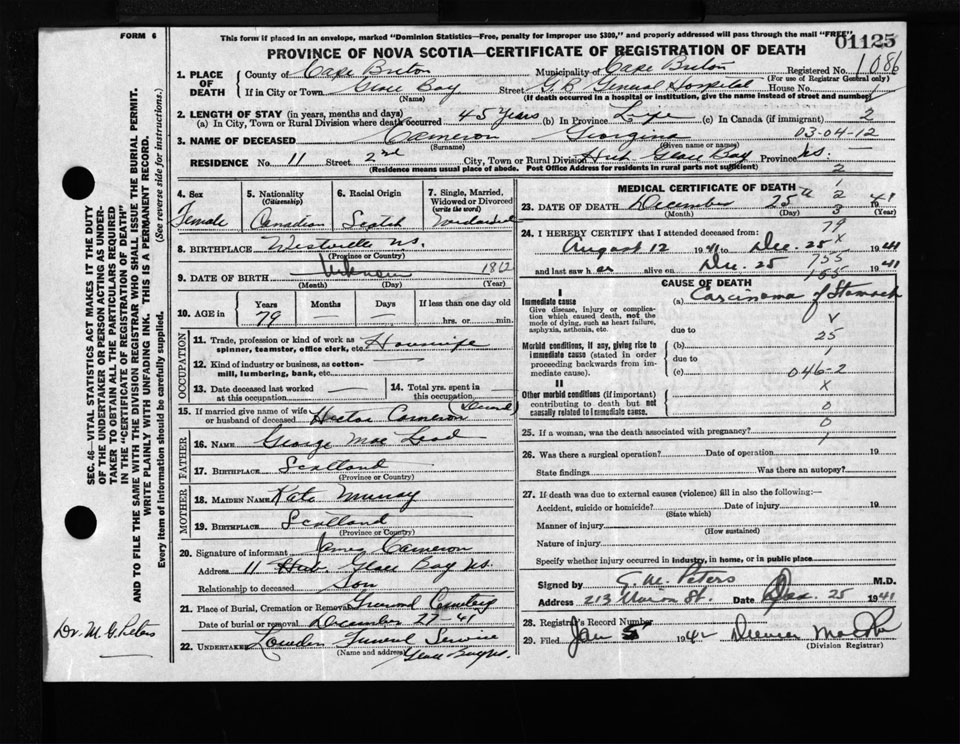 FORM 6
This form if placed in an envelope, marked "Dominion Statistics—Free, penalty for improper use $300," and properly addressed will pass through the mail "FREE"
01125
PROVINCE OF NOVA SCOTIA—CERTIFICATE OF REGISTRATION OF DEATH
1. PLACE OF DEATH
County of Cape Breton Municipality of Cape Breton Registered No. 1086
(For use of Registrar General only)
If in City or Town Glace Bay Street G.B. General Hospital House No.
(Name) (If death occurred in a hospital or institution, give the name instead of street and number)
2. LENGTH OF STAY (in years, months and days)
(a) In City, Town or Rural Division where death occurred 45 Years (b) In Province Life (c) In Canada (if immigrant) 2
03-04-12
3. NAME OF DECEASED Cameron Georgina
(Surname) (Given name or names)
RESIDENCE No. 11 Street 2nd City, Town or Rural Division Hub Glace Bay Province N.S.
(Residence means usual place of abode. Post Office Address for residents in rural parts not sufficient) 2
4. Sex
Female
5. Nationality
(Citizenship)
Canadian
6. Racial Origin
Scotch
7. Single, Married, Widowed or Divorced
(write the word)
8. BIRTHPLACE Westville N.S.
(Province or Country)
9. DATE OF BIRTH Unknown 1862
(Month) (Day) (Year)
10. AGE in
Years Months Days If less than one day old
79 — — hrs. or min.
OCCUPATION
11. Trade, profession or kind of work as spinner, teamster, office clerk, etc. Housewife
12. Kind of industry or business, as cotton-mill, lumbering, bank, etc. —
13. Date deceased last worked at this occupation —
14. Total yrs. spent in this occupation —
15. If married give name of wife or husband of deceased Hector Cameron
FATHER
16. NAME George Mac Leod
17. BIRTHPLACE Scotland
(Province or Country)
MOTHER
18. MAIDEN NAME Kate Murray
19. BIRTHPLACE Scotland
(Province or Country)
20. Signature of informant James Cameron
Address 11 Hub. Glace Bay N.S.
Relationship to deceased Son
21. Place of Burial, Cremation or Removal Greenwood Cemetery
Date of burial or removal December 27-41
22. UNDERTAKER Funeral Service
(Name and address) Glace Bay N.S.
MEDICAL CERTIFICATE OF DEATH
23. DATE OF DEATH December 25th 1941
(Month) (Day) (Year)
24. I HEREBY CERTIFY that I attended deceased from:
August 12 1941 to Dec. 25 1941
and last saw her alive on Dec. 25 1941
1
2
3
79
X
755
165
CAUSE OF DEATH
I
Immediate cause
Give disease, injury or complication which caused death, not the mode of dying, such as heart failure, asphyxia, asthenia, etc.
(a) Carcinoma of Stomach
due to
25
Morbid conditions, if any, giving rise to immediate cause (stated in order proceeding backwards from immediate cause).
(b)
due to
(c) 046-2
X
II
Other morbid conditions (if important) contributing to death but not causally related to immediate cause.
0
0
25. If a woman, was the death associated with pregnancy?
26. Was there a surgical operation? Date of operation 19
State findings Was there an autopsy?
27. If death was due to external causes (violence) fill in also the following:—
Accident, suicide or homicide? Date of injury 19
(State which)
Manner of injury
(How sustained)
Nature of injury
Specify whether injury occurred in industry, in home, or in public place
Signed by Peters M.D.
Address 213 Union St. Date Dec. 25 1941
28. Registrar's Record Number
29. Filed Jan 5 1942
(Division Registrar)
SEC. 46—VITAL STATISTICS ACT MAKES IT THE DUTY OF THE UNDERTAKER OR PERSON ACTING AS UNDERTAKER TO OBTAIN ALL THE PARTICULARS REQUIRED IN THE "CERTIFICATE OF REGISTRATION OF DEATH" AND TO FILE THE SAME WITH THE DIVISION REGISTRAR WHO SHALL ISSUE THE BURIAL PERMIT.
WRITE PLAINLY WITH UNFADING INK. THIS IS A PERMANENT RECORD.
Every item of information should be carefully supplied. (See reverse side for instructions.)
Dr. M. G. Peters